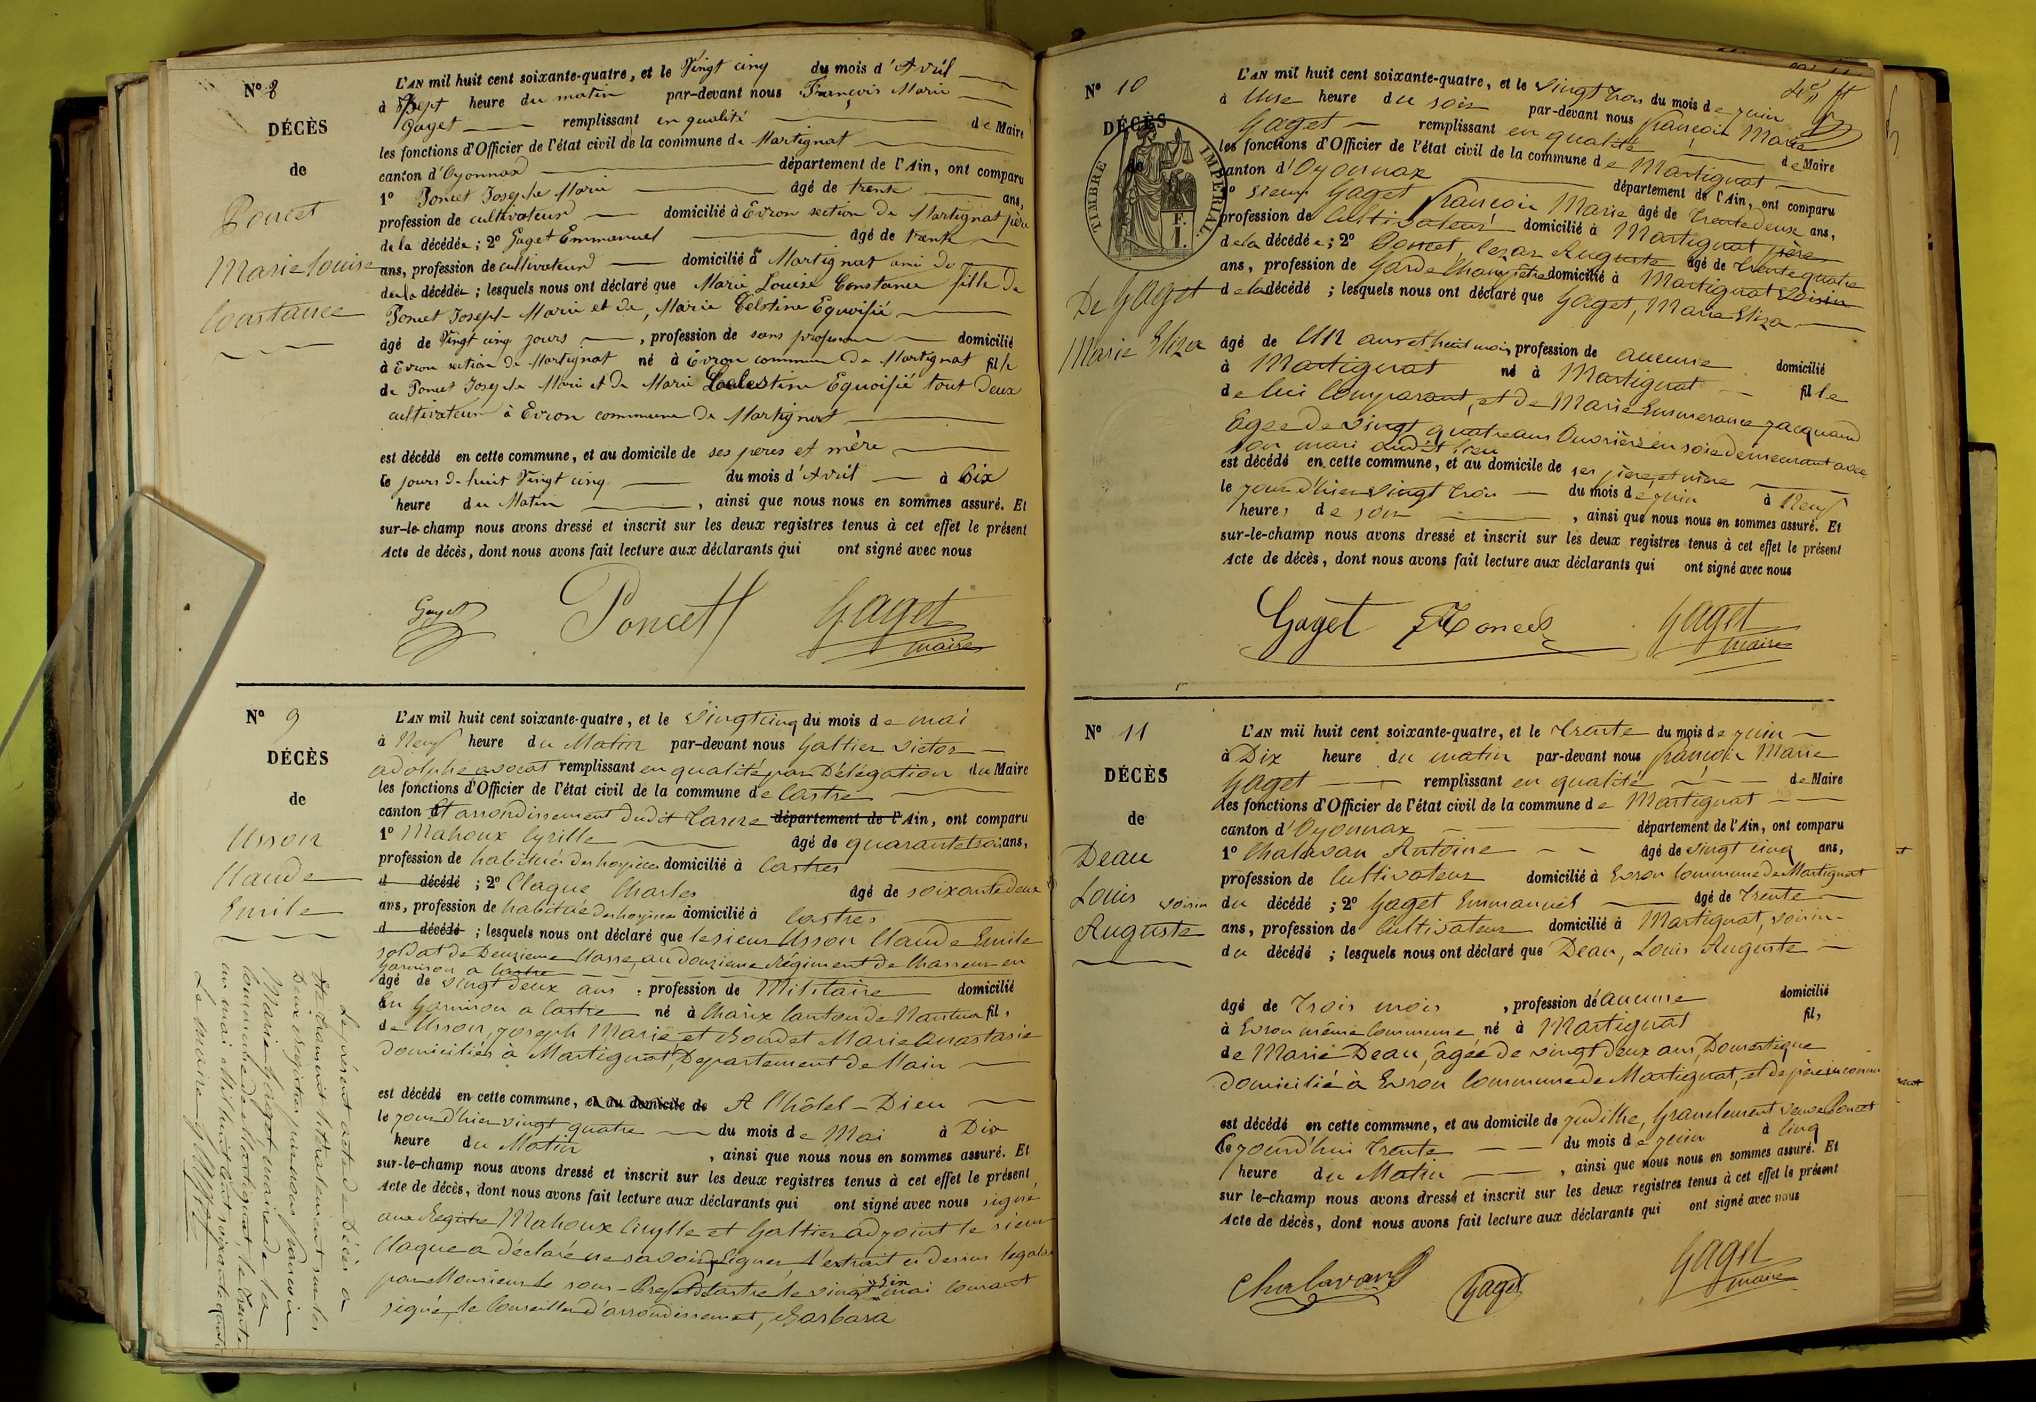 N° 8
DÉCÈS
de
Poncet
Marie Louise
Constance
L'AN mil huit cent soixante-quatre, et le Vingt cinq du mois d'Avril
à Sept heure du matin par-devant nous François Marie
Gaget remplissant en qualité de Maire
les fonctions d'Officier de l'état civil de la commune de Martignat
canton d'Oyonnax département de l'Ain, ont comparu
1° Poncet Joseph Marie âgé de trente ans,
profession de cultivateur domicilié à Evron section de Martignat père
de la décédée ; 2° Gaget Emmanuel âgé de trente
ans, profession de cultivateur domicilié à Martignat ami de
de la décédée ; lesquels nous ont déclaré que Marie Louise Constance fille de
Poncet Joseph Marie et de Marie Celestine Equoifié
âgé de Vingt cinq jours , profession de sans profession domicilié
à Evron section de Martignat né à Evron commune de Martignat fille
de Poncet Joseph Marie et de Marie Celestine Equoifié tout deux
cultivateur à Evron commune de Martignat
est décédé en cette commune, et au domicile de ses peres et mère
le jours de huit Vingt cinq du mois d'Avril à Six
heure du Matin , ainsi que nous nous en sommes assuré. Et
sur-le-champ nous avons dressé et inscrit sur les deux registres tenus à cet effet le présent
Acte de décès, dont nous avons fait lecture aux déclarants qui ont signé avec nous
Gaget Poncet Gaget
maire
N° 9
DÉCÈS
de
Usson
Claude
Emile
L'AN mil huit cent soixante-quatre, et le vingt cinq du mois de mai
à Neuf heure du Matin par-devant nous Galtier Victor
adolphe avocat remplissant en qualité par Délégation du Maire
les fonctions d'Officier de l'état civil de la commune de Castre
canton et arrondissement dudit Castre département de l'Ain, ont comparu
1° Mahoux Cyrille âgé de quarante trois ans,
profession de habitué des hospices domicilié à Castres
d décédé ; 2° Claque Charles âgé de soixante deux
ans, profession de habitué des hospices domicilié à Castres
d décédé ; lesquels nous ont déclaré que le sieur Usson Claude Emile
soldat de Deuzième Classe, au douzième Régiment de Chasseurs en
garnison a Castre
âgé de vingt deux ans , profession de Militaire domicilié
En Garnison a Castre né à Charix Canton de Nantua fils
de Usson, joseph Marie et Boudet Marie Anastasie
domiciliés à Martignat, Departement de l'ain
est décédé en cette commune, et au domicile de A l'hôtel-Dieu
le jourd'hier vingt quatre du mois de Mai à Dix
heure du Matin , ainsi que nous nous en sommes assuré. Et
sur-le-champ nous avons dressé et inscrit sur les deux registres tenus à cet effet le présent
Acte de décès, dont nous avons fait lecture aux déclarants qui ont signé avec nous signé
aux Registre Mahoux Cirylle et Galtier adjoint le sieur
Claque a déclaré ne savoir signer l'extrait ci dessus legalisé
par Monsieur le sous-Prefet de Castre le vingt six mai courant
signé, le Conseiller d'arrondissement, Barbara
Le présent acte de Décès a
Ete transcrit littéralement sur les
Deux Registres par nous francois
Marie Gaget maire de la
Commune de Martignat le trente
un mai mil huit cent soixante quatre
Le maire Gaget
N° 10
DÉCÈS
de
TIMBRE IMPÉRIAL
De Gaget
Marie Eliza
L'AN mil huit cent soixante-quatre, et le vingt trois du mois de juin
à Une heure du soir par-devant nous francois Marie
Gaget remplissant en qualité de Maire
les fonctions d'Officier de l'état civil de la commune de Martignat
canton d'Oyonnax département de l'Ain, ont comparu
1° sieur Gaget francois Marie âgé de trente deux ans,
profession de Cultivateur domicilié à Martignat père
de la décédée ; 2° Poncet Cezar Auguste âgé de trente quatre
ans, profession de Garde Champêtre domicilié à Martignat voisin
de la décédé ; lesquels nous ont déclaré que Gaget, Marie Eliza
âgé de Un ans et huit mois, profession de aucune domicilié
à Martignat né à Martignat fille
de lui Comparant, et de Marie Emmerance jacquand
agee de vingt quatre ans Ouvrière en soie demeurant avec
son mari audit lieu
est décédé en cette commune, et au domicile de ses père et mère
le jourd'hier vingt trois du mois de juin à Neuf
heures de soir , ainsi que nous nous en sommes assuré. Et
sur-le-champ nous avons dressé et inscrit sur les deux registres tenus à cet effet le présent
Acte de décès, dont nous avons fait lecture aux déclarants qui ont signé avec nous
Gaget Poncet Gaget
maire
N° 11
DÉCÈS
de
Deau
Louis
Auguste
L'AN mil huit cent soixante-quatre, et le trente du mois de juin
à Dix heure du matin par-devant nous francois Marie
Gaget remplissant en qualité de Maire
les fonctions d'Officier de l'état civil de la commune de Martignat
canton d'Oyonnax département de l'Ain, ont comparu
1° Chalavan Antoine âgé de vingt cinq ans,
profession de Cultivateur domicilié à Evron Commune de Martignat
voisin du décédé ; 2° Gaget Emmanuel âgé de trente
ans, profession de Cultivateur domicilié à Martignat, voisin
du décédé ; lesquels nous ont déclaré que Deau, Louis Auguste
âgé de trois mois , profession d'aucune domicilié
à Evron même Commune né à Martignat fils
de Marie Deau, âgée de vingt deux ans, Domestique
domicilié à Evron Commune de Martignat, et de père inconnu
est décédé en cette commune, et au domicile de judithe, Gravelement veuve Poncet
le jourd'hui trente du mois de juin à Cinq
heure du Matin , ainsi que nous nous en sommes assuré. Et
sur le-champ nous avons dressé et inscrit sur les deux registres tenus à cet effet le présent
Acte de décès, dont nous avons fait lecture aux déclarants qui ont signé avec nous
Chalavand Gaget Gaget
maire